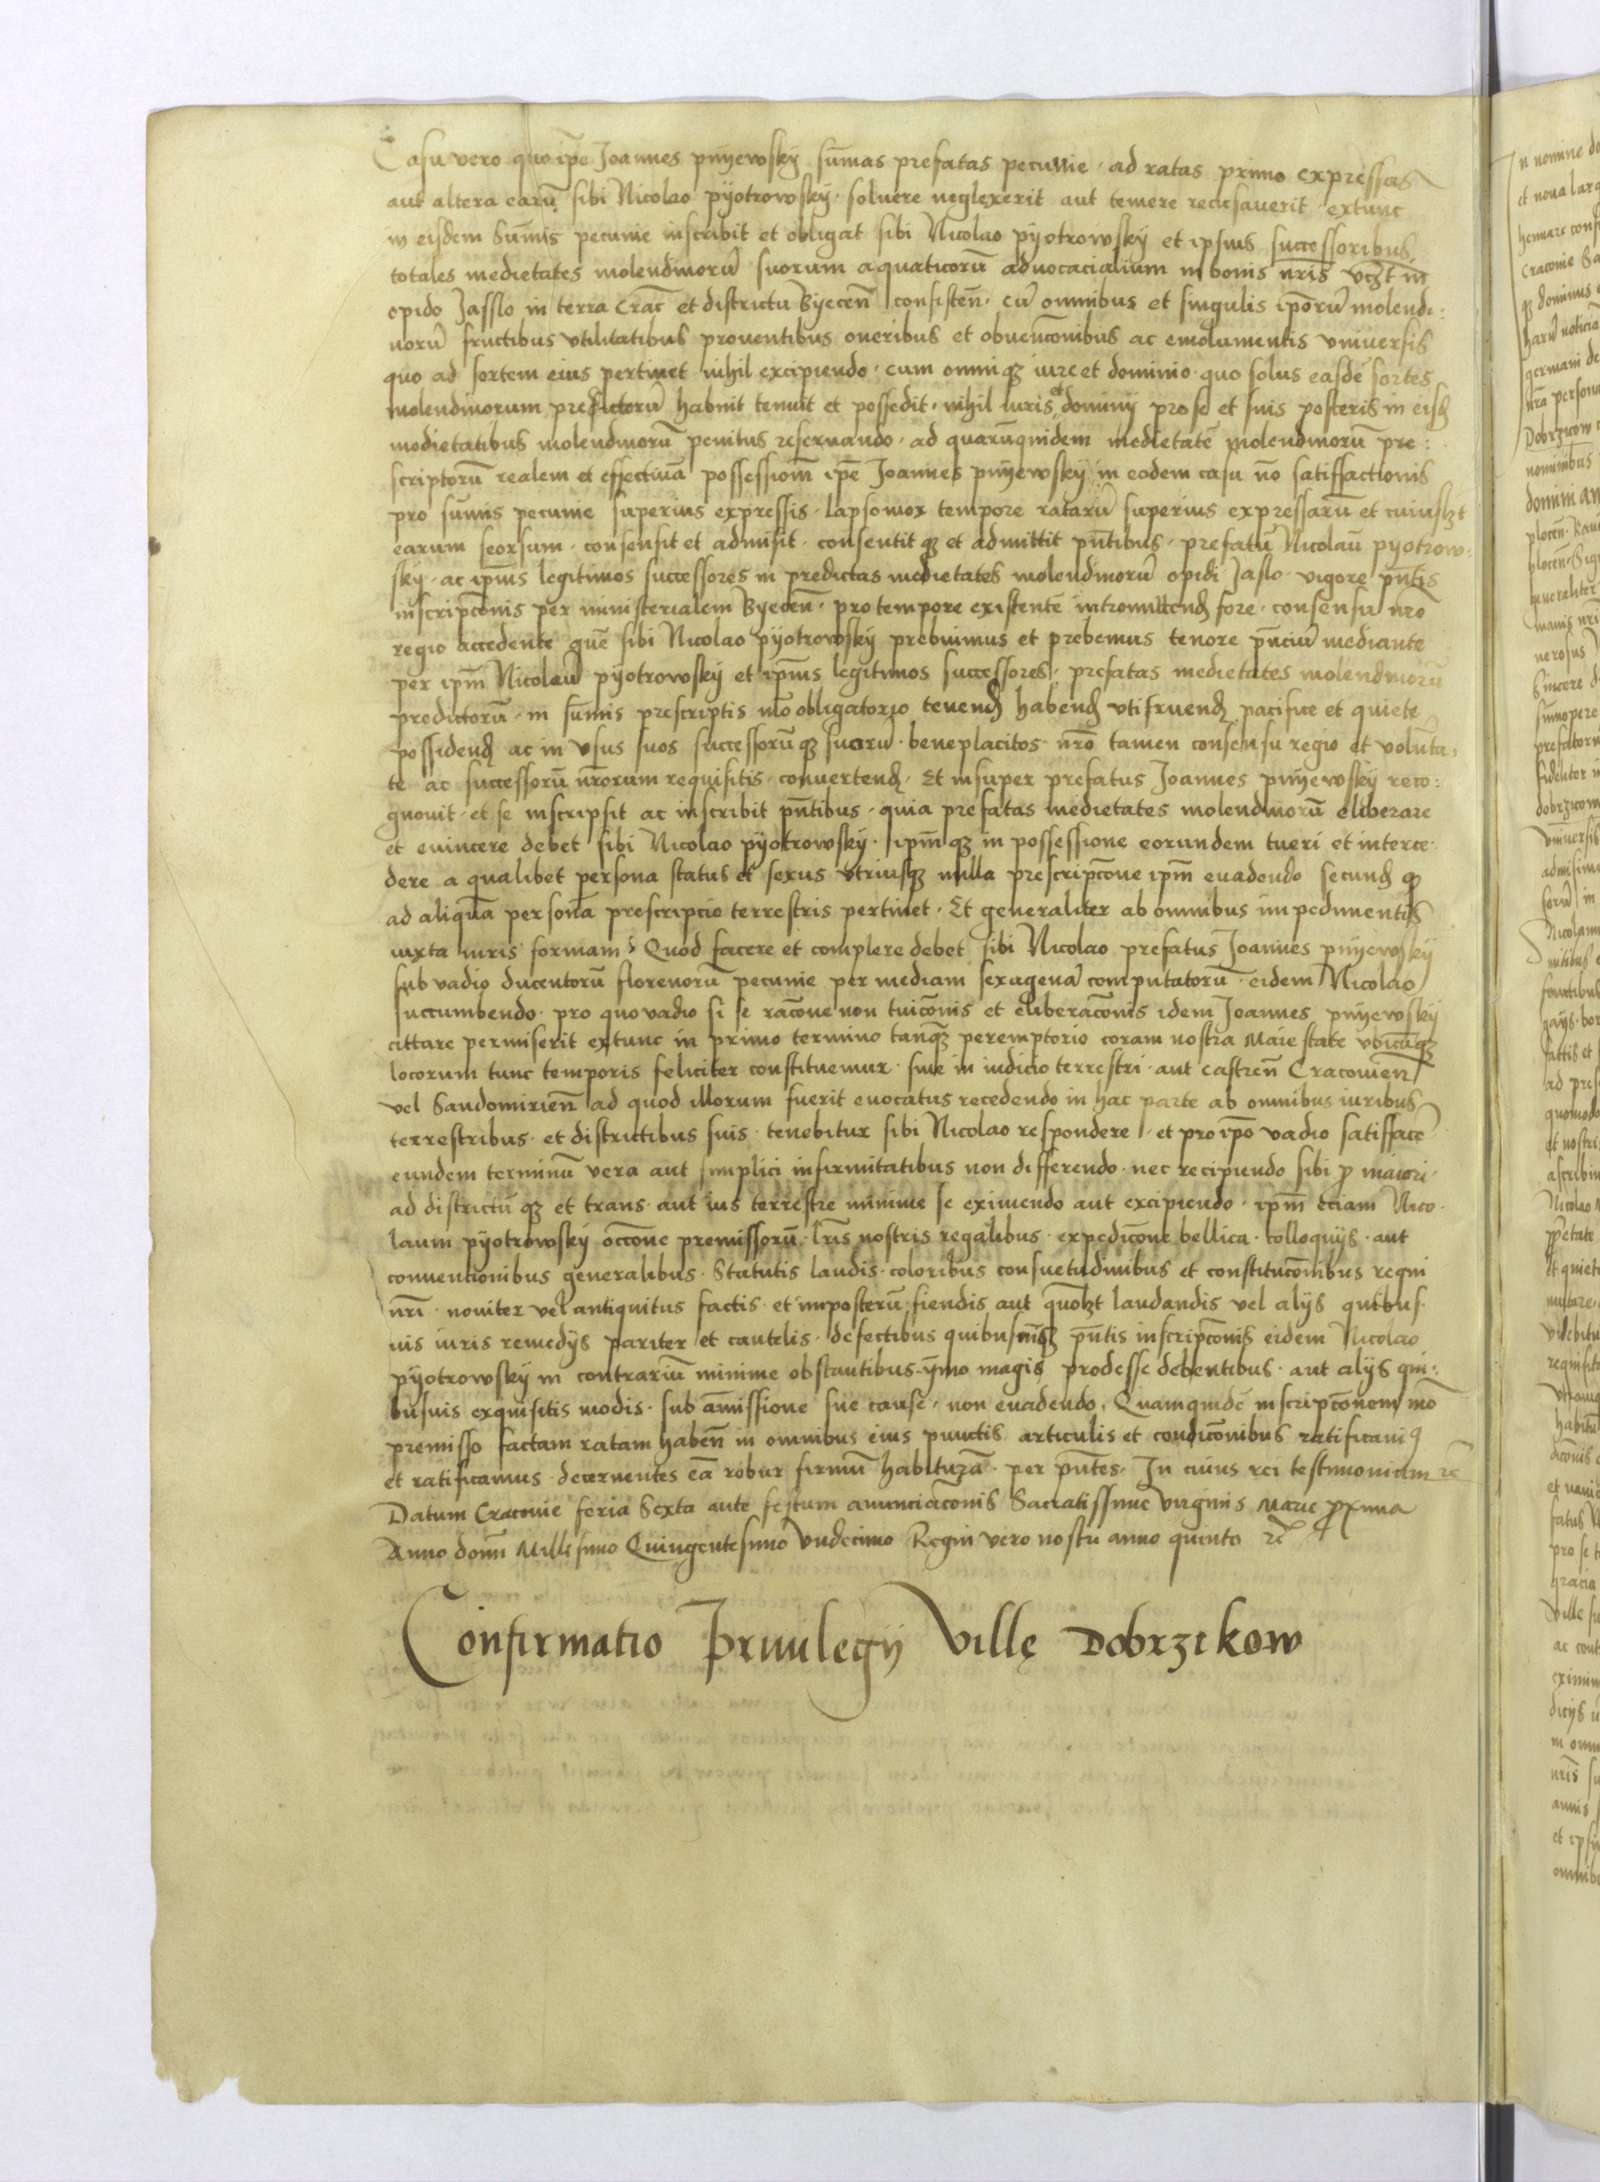 Casu vero quo ip̄e Joannes pnÿewskÿ sūmas prefatas pecunie · ad ratas primo expressas
aut altera earū sibi Nicolao pÿotrowskÿ · soluere neglexerit aut temere recusauerit · extunc
in eisdem Sūmis pecunie inscribit et obligat sibi Nicolao pÿotrowskÿ et ipsius successoribus
totales medietates molendinorū suorum aquaticorū aduocacialium in bonis nr̄is vꝫt in
opido Jasslo in terra Crac̄ et districtu Byecen̄ consisten̄ · cū omnibus et singulis ip̄orū molendi:
norū fructibus vtilitatibus prouentibus oneribus et obuenc̄onibus ac emolumentis vniuersis
quo ad sortem eius pertinet nihil excipiendo · cum omniqꝫ iure et dominio · quo solus easdē sortes
molendinorum predictorū habuit tenuit et possedit · nihil iuris et dominij pro se et suis posteris in eisđ
medietatibus molendinorū penitus reseruando · ad quarūquidem medietatē molendinorū pre:
scriptorū realem et effectiuā possessionē ip̄e Joannes pnÿewskÿ in eodem casu nō satisfactionis
pro sūmis pecunie superius expressis · lapso mox tempore ratarū superius expressarū et cuiuslꝫt
earum seorsum · consensit et admisit · consentit qꝫ et admittit pn̄tibus · prefatū Nicolaū pyotrow:
skÿ · ac ip̄ius legitimos successores in predictas medietates molendinorū opidi Jaslo · vigore pn̄tis
inscripc̄onis per ministerialem Byecen̄ · pro tempore existentē intromittenđ fore · consensu nr̄o
regio accedente quē sibi Nicolao pÿotrowskÿ prebuimus et prebemus tenore pn̄ciū mediante
per ip̄m Nicolaū pÿotrowskÿ et ip̄ius legitimos successores · prefatas medietates molendinorū
predictorū · in sūmis prescriptis mō obligatorio tenenđ habenđ vtifruenđ pacifice et quiete
possidenđ ac in vsus suos successorūqꝫ suorū · beneplacitos · nr̄o tamen consensu regio et volūta:
te ac successorū nr̄orum requisitis · conuertenđ · Et insuper prefatus Joannes pnÿewskÿ reco:
gnouit · et se inscripsit ac inscribit pn̄tibus · quia prefatas medietates molendinorū eliberare
et euincere debet sibi Nicolao pÿotrowskÿ · ip̄m qꝫ in possessione eorundem tueri et interce:
dere a qualibet persona status et sexus vtriusqꝫ nulla prescripc̄one ip̄m euadendo secunđ qꝫ
ad aliquā personā prescripcio terrestris pertinet · Et generaliter ab omnibus impedimentis
iuxta iuris formam · Quod facere et complere debet sibi Nicolao prefatus Joannes pnÿewskÿ
sub vadio ducentorū florenorū pecunie per mediam sexagenā computatorū · eidem Nicolao
succumbendo · pro quo vadio si se rac̄one non tuic̄onis et eliberac̄onis idem Joannes pnÿewskÿ
cittare permiserit extunc in primo termino tanqꝫ peremptorio coram nostra Maiestate vbicūqꝫ
locorum tunc temporis feliciter constituemur · siue in iudicio terrestri · aut castren̄ Cracouien̄
vel Sandomirien̄ ad quod illorum fuerit euocatus recedendo in hac parte ab omnibus iuribus
terrestribus · et districtibus suis · tenebitur sibi Nicolao respondere · et pro ip̄o vadio satisfacē
eundem terminū vera aut simplici infirmitatibus non differendo · nec recipiendo sibi ꝓ maiori ·
ad districtū qꝫ et trans · aut ius terrestre minime se eximendo aut excipiendo · ip̄m eciam Nico:
laum pÿotrowskÿ occ̄one premissorū · lr̄is nostris regalibus · expedic̄one bellica · colloquijs · aut
conuentionibus generalibus · Statutis laudis · coloribus consuetudinibus et constituc̄onibus regni
nr̄i · nouiter vel antiquitus factis · et imposterū fiendis aut quōlꝫt laudandis vel alijs quibus:
uis iuris remedijs pariter et cautelis · defectibus quibusuisqꝫ pn̄tis inscripc̄onis eidem Nicolao
pÿotrowskÿ in contrariū minime obstantibus · ymo magis prodesse debentibus · aut alijs qui:
busuis exquisitis modis · sub amissione sue cause · non euadendo · Quamquidē inscripc̄onem mō
premisso factam ratam haben̄ in omnibus eius punctis articulis et condic̄onibus ratificauimꝰ
et ratificamus · decernentes eā robur firmū habiturā · per pn̄tes · In cuius rei testimonium ꝛc̄
Datum Cracouie feria Sexta ante festum annunciac̄onis Sacratissime virginis Marie ꝓxima
Anno domī Millesimo Quingentesimo vndecimo Regni vero nostri anno quinto ꝛc̄
Confirmatio Priuilegij Villę Dobrzikow